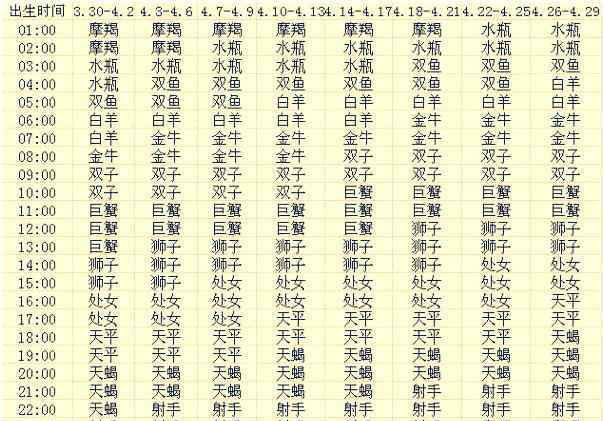 出生时间 3.30-4.2 4.3-4.6 4.7-4.9 4.10-4.13 4.14-4.17 4.18-4.21 4.22-4.25 4.26-4.29
01:00 摩羯 摩羯 摩羯 摩羯 摩羯 摩羯 水瓶 水瓶
02:00 摩羯 摩羯 水瓶 水瓶 水瓶 水瓶 水瓶 水瓶
03:00 水瓶 水瓶 水瓶 水瓶 水瓶 双鱼 双鱼 双鱼
04:00 水瓶 双鱼 双鱼 双鱼 双鱼 双鱼 双鱼 白羊
05:00 双鱼 双鱼 双鱼 白羊 白羊 白羊 白羊 白羊
06:00 白羊 白羊 白羊 白羊 白羊 金牛 金牛 金牛
07:00 白羊 金牛 金牛 金牛 金牛 金牛 金牛 金牛
08:00 金牛 金牛 金牛 金牛 双子 双子 双子 双子
09:00 双子 双子 双子 双子 双子 双子 双子 双子
10:00 双子 双子 双子 双子 巨蟹 巨蟹 巨蟹 巨蟹
11:00 巨蟹 巨蟹 巨蟹 巨蟹 巨蟹 巨蟹 巨蟹 巨蟹
12:00 巨蟹 巨蟹 巨蟹 巨蟹 巨蟹 狮子 狮子 狮子
13:00 巨蟹 狮子 狮子 狮子 狮子 狮子 狮子 狮子
14:00 狮子 狮子 狮子 狮子 狮子 狮子 处女 处女
15:00 狮子 狮子 处女 处女 处女 处女 处女 处女
16:00 处女 处女 处女 处女 处女 处女 处女 天平
17:00 处女 处女 处女 天平 天平 天平 天平 天平
18:00 天平 天平 天平 天平 天平 天平 天平 天蝎
19:00 天平 天平 天平 天蝎 天蝎 天蝎 天蝎 天蝎
20:00 天蝎 天蝎 天蝎 天蝎 天蝎 天蝎 天蝎 天蝎
21:00 天蝎 天蝎 天蝎 天蝎 天蝎 射手 射手 射手
22:00 天蝎 射手 射手 射手 射手 射手 射手 射手